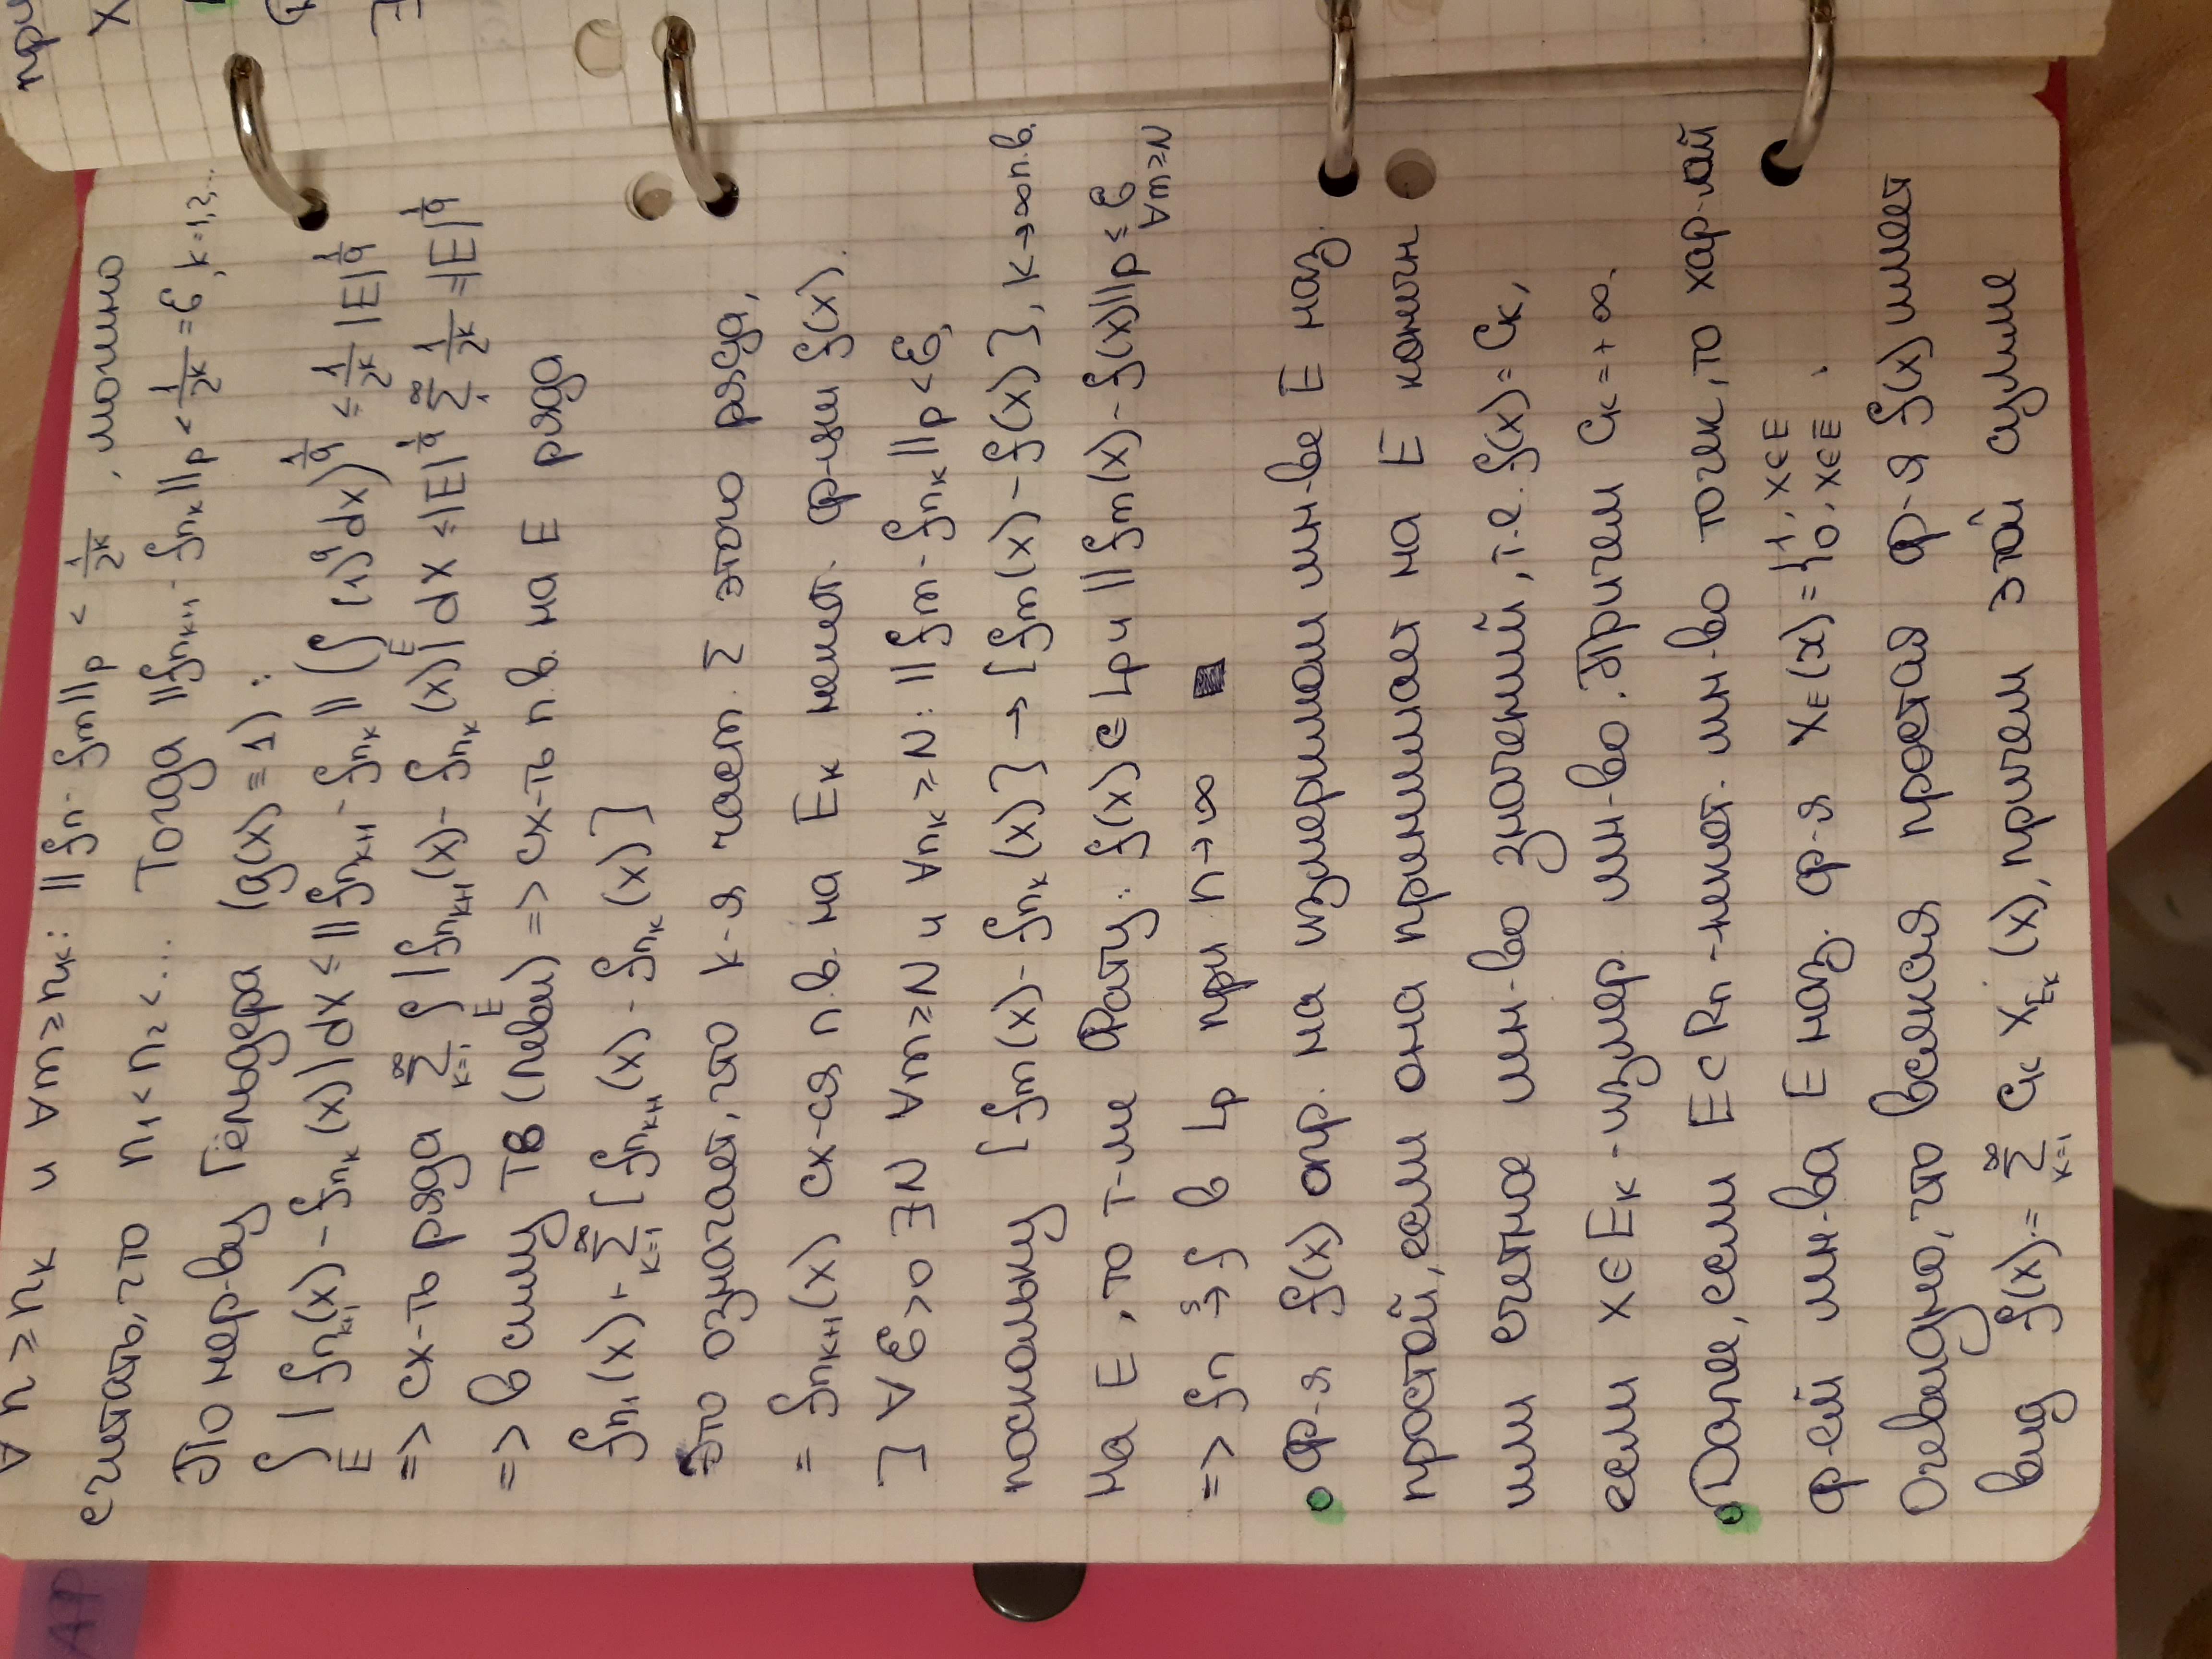 ∀ n ≥ nₖ и ∀m ≥ nₖ: ||fn - fm||p < 1/2ᵏ, можно
считать, что n₁ < n₂ < ... Тогда ||fnₖ₊₁ - fnₖ||p < 1/2ᵏ = ℰ, k = 1,2,...
По нер-ву Гёльдера (g(x) ≡ 1):
∫_E |fnₖ₊₁(x) - fnₖ(x)| dx ≤ ||fnₖ₊₁ - fnₖ|| (∫_E (1)^q dx)^(1/q) ≤ 1/2ᵏ |E|^(1/q)
=> сх-ть ряда ∑_(k=1)^∞ ∫_E |fnₖ₊₁(x) - fnₖ(x)| dx ≤ |E|^(1/q) ∑_1^∞ 1/2ᵏ = |E|^(1/q)
=> в силу ТВ (Леви) => сх-ть п.в. на E ряда
fn₁(x) + ∑_(k=1)^∞ [fnₖ₊₁(x) - fnₖ(x)]
Это означает, что k-я част. Σ этого ряда,
= fnₖ₊₁(x) сх-ся п.в. на Eк некот. ф-ии f(x).
] ∀ ℰ > 0 ∃N ∀m ≥ N и ∀nₖ ≥ N: ||fm - fnₖ||p < ℰ,
поскольку [fm(x) - fnₖ(x)] → [fm(x) - f(x)], k → ∞ п.в.
на E, то т-ме Фату: f(x) ∈ Lp и ||fm(x) - f(x)||p ≤ ℰ
∀m ≥ N
=> fn → f в Lp при n → ∞ ■
• Ф-я f(x) опр. на измеримом мн-ве E наз.
простой, если она принимает на E конечн
или счетное мн-во значений, т.е. f(x) = Cₖ,
если x ∈ Eₖ - измер. мн-во. Причем Cₖ = + ∞.
• Далее, если E ⊂ Rn - некот. мн-во точек, то хар-кой
ф-ей мн-ва E наз. ф-я χ_E(x) = {1, x ∈ E
0, x ∈ E̅ .
Очевидно, что всякая простая ф-я f(x) имеет
вид f(x) = ∑_(k=1)^∞ Cₖ χ_Eₖ(x), причем этой сумме